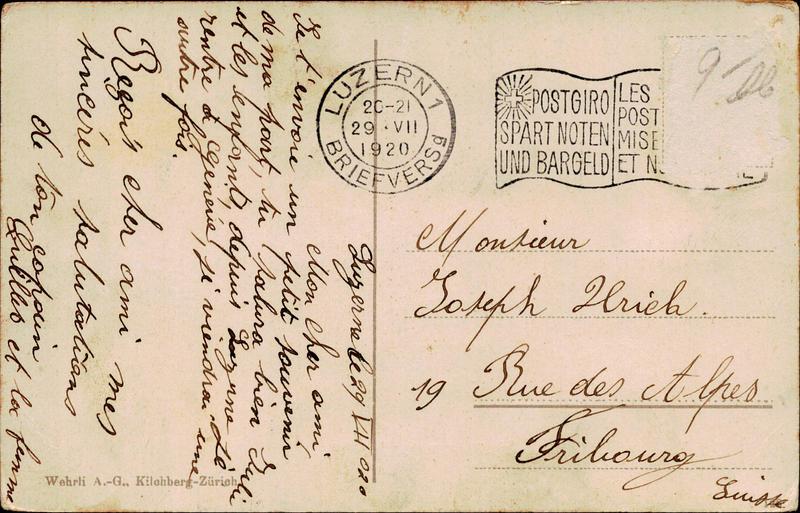 Luzerne le 29 VII 920
Mon cher ami
Je t'envoie un petit souvenir
de ma part, tu salura bien Juli
et les enfants, depuis Luzerne Je
rentre à Genève, si viendrai une
autre fois.
Reçois cher ami mes
sincères salutations
de ton copain
et la femme
LUZERN 1
20-21
29.VII
1920
BRIEFVERSd
POSTGIRO
SPART NOTEN
UND BARGELD
LES
POST
MISE
ET N
Monsieur
Joseph Ulrich.
19 Rue des Alpes
Fribourg
Suisse
Wehrli A.-G., Kilchberg-Zürich